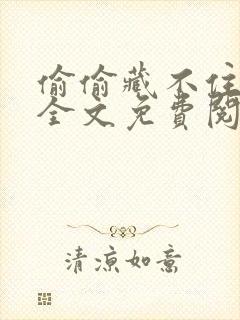 偷偷藏不住
全文免費閱
清涼如意